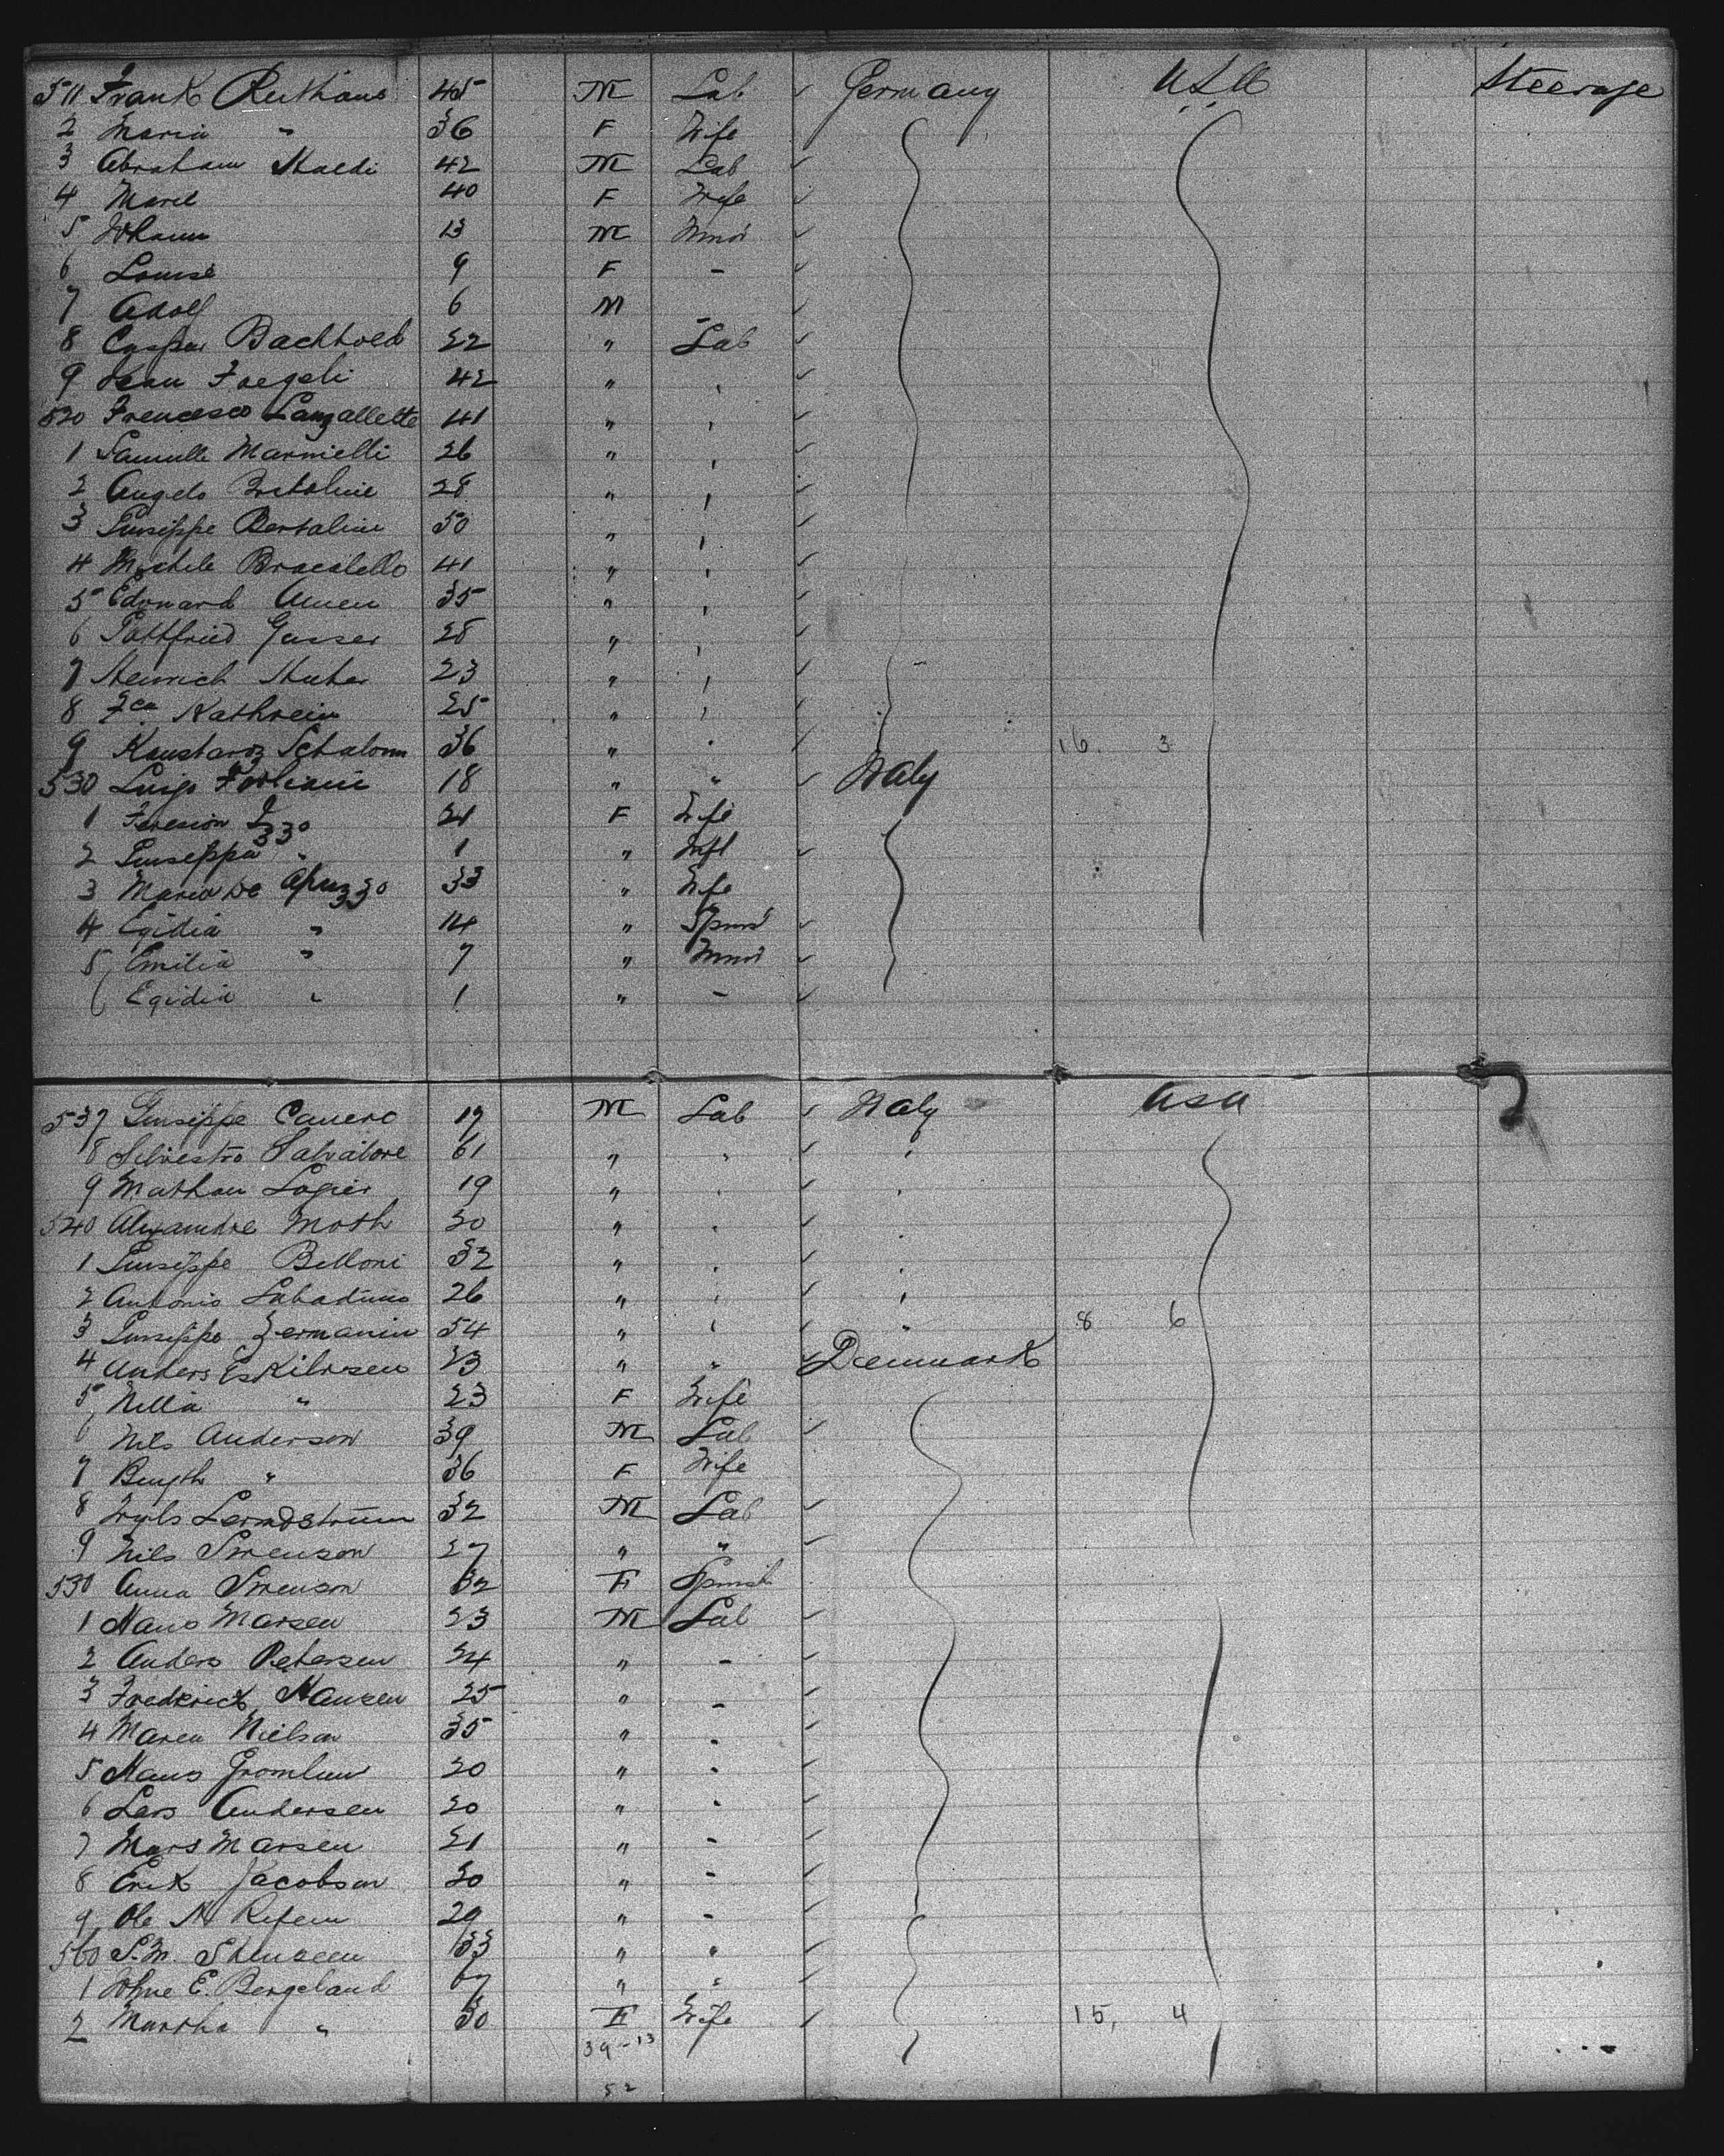 511 Frank Ruthaus 45 M Lab ✓ Germany USA Steerage
2 Maria " 36 F Wife
3 Abraham Staedi 42 M Lab ✓
4 Marie 40 F Wife ✓
5 Johann 13 M Minor ✓
6 Louise 9 F - ✓
7 Adolf 6 M - ✓
8 Caspar Bachhold 22 " Lab ✓
9 Jean Faegeli 42 " " ✓
520 Francesco Lanzallette 41 " " ✓
1 Samuelle Marnielli 26 " " ✓
2 Angelo Bretoline 28 " " ✓
3 Guiseppe Bertaline 50 " " ✓
4 Michele Bracalello 41 " " ✓
5 Edouard Amen 35 " " ✓
6 Gottfried Gasser 28 " " ✓
7 Heinrich Huber 23 " " ✓
8 Fca Kathrein 25 " " ✓
9 Schalom 36 " " ✓ 16. 3
530 Luigi Forliani 18 " " ✓ Italy
1 21 F Wife
2 Guiseppa " 1 " Inft ✓
3 Maria De Apuzzo 33 " Wife
4 Egidia " 14 " Spinst ✓
5 Emilia " 7 " Minor ✓
6 Egidia " 1 " - ✓
537 Guiseppe Cauero 19 M Lab ✓ Italy USA
8 Silvestro Salvatore 61 " " ✓ "
9 Mathau Logier 19 " " ✓ "
540 Alexandre Moth 20 " " ✓ "
1 Guiseppe Belloni 32 " " ✓ "
2 Antonio Labaduno 26 " " ✓ "
3 Guiseppe Germanin 54 " " ✓ " 8 6
4 Anders Eskilvsen 23 " " ✓ Denmark
5 Nella " 23 F Wife
6 Nils Anderson 39 M Lab ✓
7 Bength " 36 F Wife
8 Lerndström 32 M Lab ✓
9 Nils Swenson 27 " " ✓
550 Anna Swenson 32 F Spinst
1 Hans Marsen 23 M Lab ✓
2 Anders Petersen 24 " - ✓
3 Frederick Hansen 25 " - ✓
4 Maren Nielson 35 " - ✓
5 Hans Gromlun 20 " - ✓
6 Lars Andersen 20 " - ✓
7 Mars Marsen 21 " - ✓
8 Erik Jacobson 20 " - ✓
9 Ole N Refem 29 " - ✓
560 S.M. Stenseen 33 " " ✓
1 E. Bergeland 67 " " ✓
2 Martha " 30 F Wife ✓ 15, 4
39-13
52